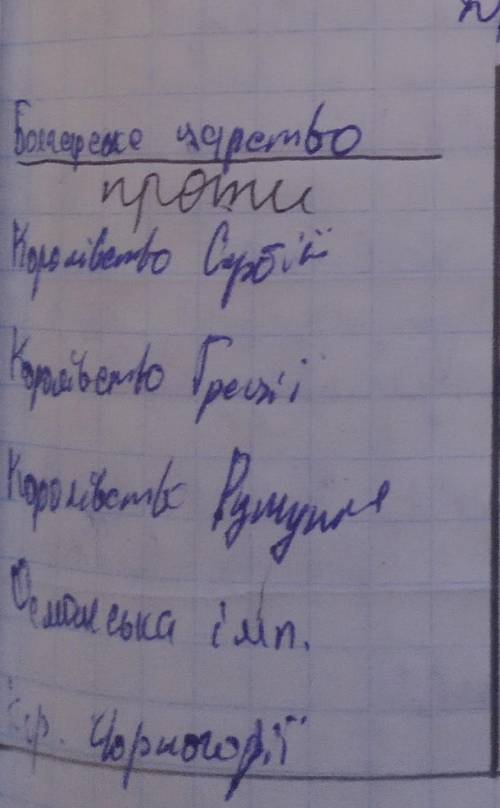 Болгарське царство
проти
Королівство Сербії
Королівство Греції
Королівств Румунія
Османська імп.
Кор. Чорногорії